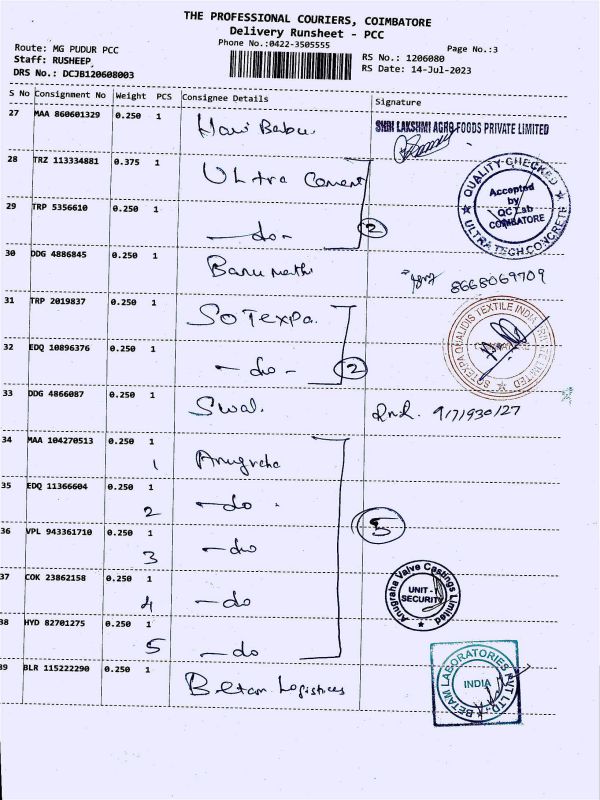 THE PROFESSIONAL COURIERS, COIMBATORE
Delivery Runsheet - PCC
Phone No.:0422-3505555
Page No.:3
Route: MG PUDUR PCC
Staff: RUSHEEP
DRS No.: DCJB120608003
RS No.: 1206080
RS Date: 14-Jul-2023
S No Consignment No Weight PCS Consignee Details Signature
27 MAA 860601329 0.250 1 Hari Babu SHRI LAKSHMI AGRO FOODS PRIVATE LIMITED
28 TRZ 113334881 0.375 1 Ultra Cement
QUALITY CHECKED Accepted by QC Lab COIMBATORE ULTRATECH CONCRETE
29 TRP 5356610 0.250 1 -do- 2
30 DDG 4886845 0.250 1 Banumathi 8668069709
31 TRP 2019837 0.250 1 SoTexpa.
SOTEXPA QUALIDIS TEXTILE INDIA PRIVATE LIMITED
32 EDQ 10896376 0.250 1 -do- 2
33 DDG 4866087 0.250 1 Swal. 9171930127
34 MAA 104270513 0.250 1 1 Anugraha
35 EDQ 11366604 0.250 1 2 -do
5
36 VPL 943361710 0.250 1 3 -do
37 COK 23862158 0.250 1 4 -do
Anugraha Valve Castings Limited UNIT-I SECURITY
38 HYD 82701275 0.250 1 5 -do
39 BLR 115222290 0.250 1 Betam Logistices
BETAM LABORATORIES PVT LTD INDIA